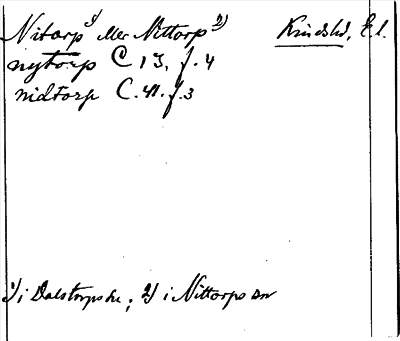 Nitorp 1) eller Nittorp 2) Kinds hd, El.
nytorp C. 13, f. 4
nidtorp C. 41. f. 3
1) i Dalstorps sn; 2) i Nittorps sn